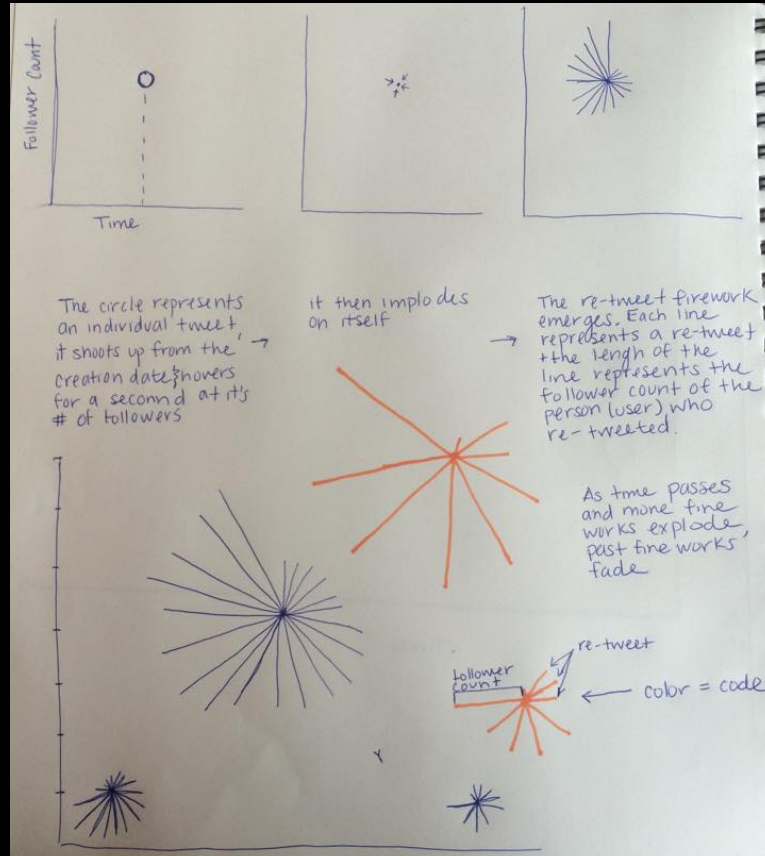 Follower Count
Time
The circle represents
an individual tweet,
it shoots up from the
creation date & hovers
for a seconnd at it's
# of followers
→
it then implodes
on itself
→
The re-tweet firework
emerges. Each line
represents a re-tweet
+ the lengh of the
line represents the
follower count of the
person (user) who
re-tweeted.
As time passes
and more fire
works explode,
past fire works
fade
follower
count
re-tweet
color = code
Y